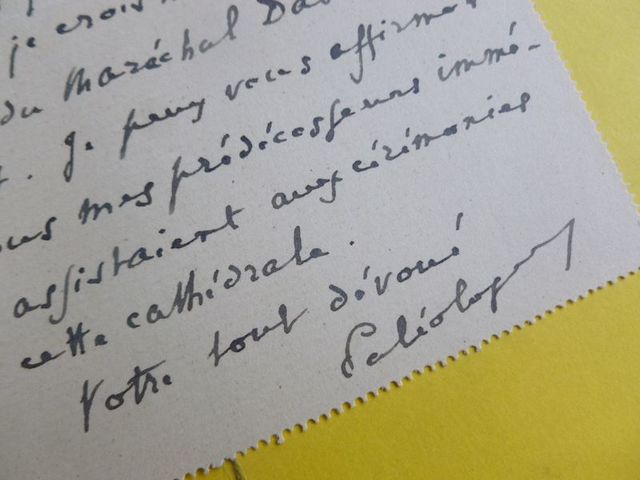 je crois
du Maréchal Dav
. Je peux vous affirmer
mes prédécesseurs immé-
assistaient aux cérémonies
cette cathédrale.
Votre tout dévoué
Paléologue